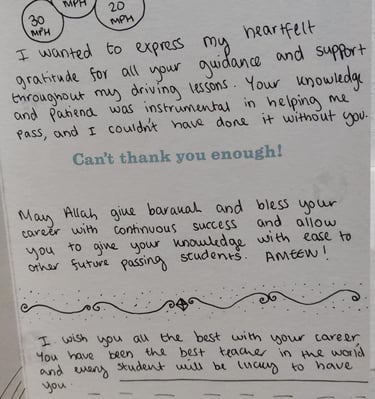 MPH
30
MPH
20
MPH
I wanted to express my heartfelt
gratitude for all your guidance and support
throughout my driving lessons. Your knowledge
and Patience was instrumental in helping me
pass, and I couldn't have done it without you.
Can't thank you enough!
May Allah give barakah and bless your
career with continuous success and allow
you to give your knowledge with ease to
other future passing students. AMEEN!
I wish you all the best with your career
You have been the best teacher in the world
and every student will be lucky to have
you.